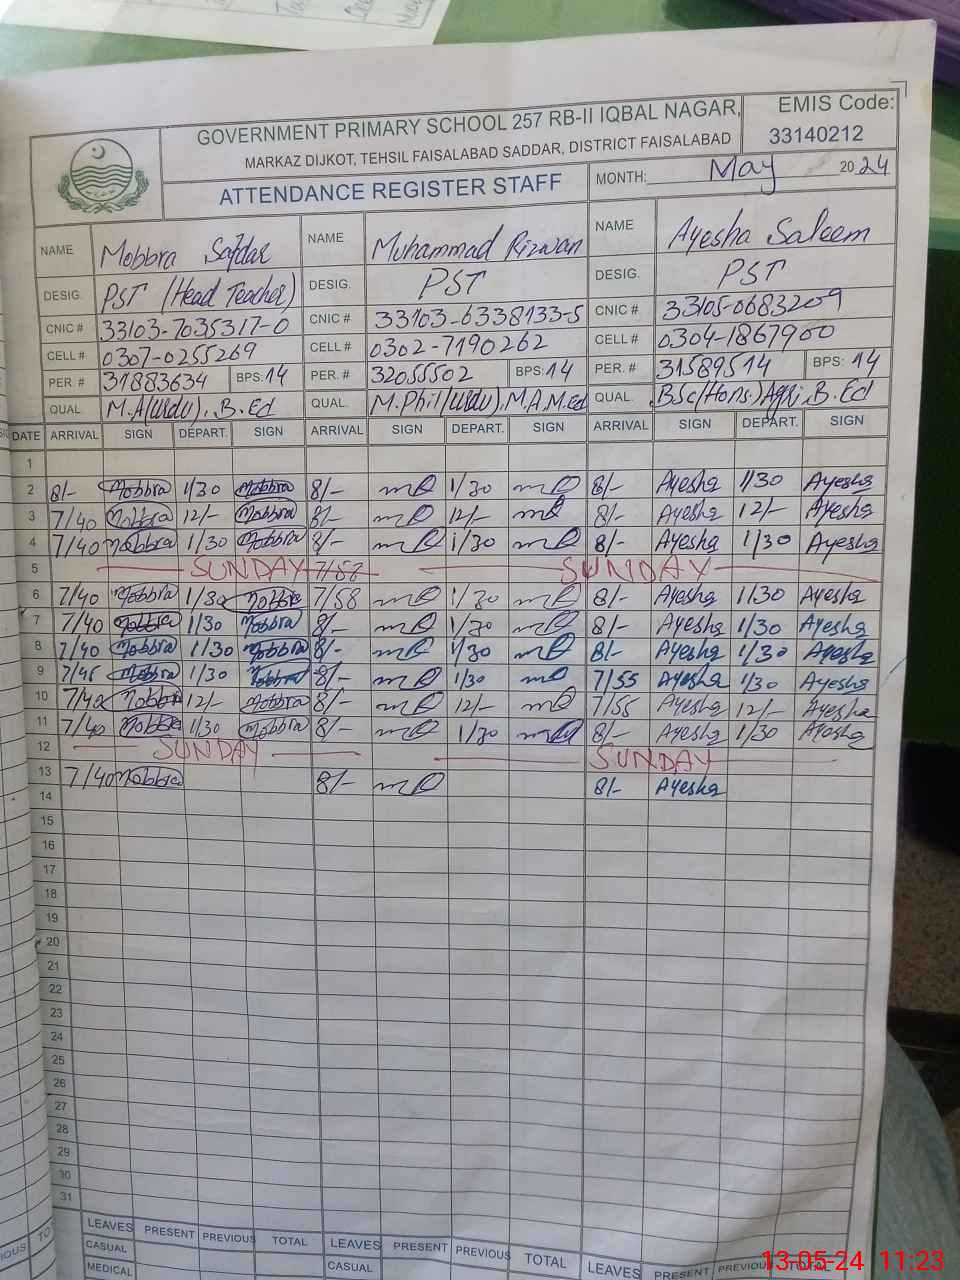 GOVERNMENT PRIMARY SCHOOL 257 RB-II IQBAL NAGAR, EMIS Code:
MARKAZ DIJKOT, TEHSIL FAISALABAD SADDAR, DISTRICT FAISALABAD 33140212
ATTENDANCE REGISTER STAFF MONTH: May 2024
NAME Mobbra Safdar NAME Muhammad Rizwan NAME Ayesha Saleem
DESIG. PST (Head Teacher) DESIG. PST DESIG. PST
CNIC # 33103-7035317-0 CNIC # 33103-6338133-5 CNIC # 33105-0683209
CELL # 0307-0255269 CELL # 0302-7190262 CELL # 0304-1867900
PER. # 31883634 BPS: 14 PER. # 32055502 BPS: 14 PER. # 31589514 BPS: 14
QUAL. M.A(Urdu). B.Ed QUAL. M.Phil(Urdu).M.A.M.Ed QUAL. BSc(Hons.)Agri.B.Ed
DATE ARRIVAL SIGN DEPART. SIGN ARRIVAL SIGN DEPART. SIGN ARRIVAL SIGN DEPART. SIGN
1
2 8/- Mobbra 1/30 Mobbra 8/- 1/30 8/- Ayesha 1/30 Ayesha
3 7/40 Mobbra 12/- Mobbra 8/- 12/- 8/- Ayesha 12/- Ayesha
4 7/40 Mobbra 1/30 Mobbra 8/- 1/30 8/- Ayesha 1/30 Ayesha
5 SUNDAY 7/58 SUNDAY
6 7/40 Mobbra 1/30 Mobbra 7/58 1/30 8/- Ayesha 1/30 Ayesha
7 7/40 Mobbra 1/30 Mobbra 8/- 1/30 8/- Ayesha 1/30 Ayesha
8 7/40 Mobbra 1/30 Mobbra 8/- 1/30 8/- Ayesha 1/30 Ayesha
9 7/45 Mobbra 1/30 Mobbra 8/- 1/30 7/55 Ayesha 1/30 Ayesha
10 7/40 Mobbra 12/- Mobbra 8/- 12/- 7/55 Ayesha 12/- Ayesha
11 7/40 Mobbra 1/30 Mobbra 8/- 1/30 8/- Ayesha 1/30 Ayesha
12 SUNDAY SUNDAY
13 7/40 Mobbra 8/- 8/- Ayesha
14
15
16
17
18
19
20
21
22
23
24
25
26
27
28
29
30
31
LEAVES PRESENT PREVIOUS TOTAL LEAVES PRESENT PREVIOUS TOTAL LEAVES PRESENT PREVIOUS TOTAL
CASUAL CASUAL
MEDICAL
13-05-24 11:23